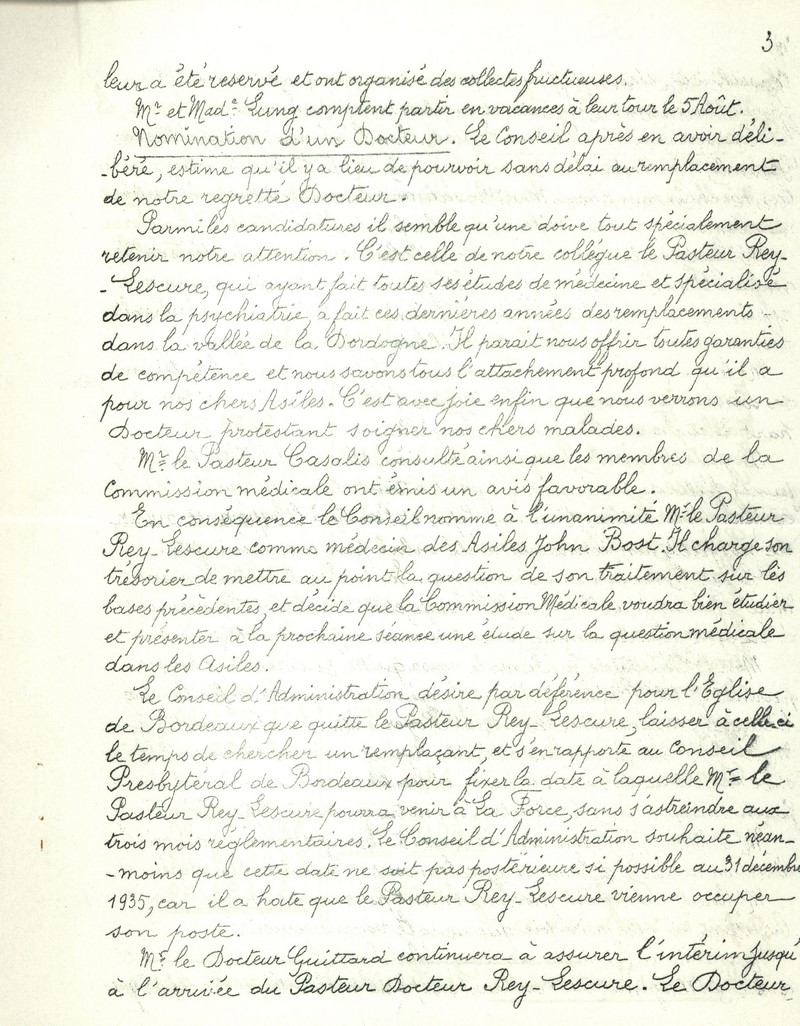 3
leur a été reservé et ont organisé des collectes fructueuses.
Mr et Made Lung comptent partir en vacances à leur tour le 5 Août.
Nomination d'un Docteur. Le Conseil après en avoir déli-
-béré, estime qu'il y a lieu de pourvoir sans délai au remplacement
de notre regretté Docteur.
Parmi les candidatures il semble qu'une doive tout spécialement
retenir notre attention. C'est celle de notre collègue le Pasteur Rey-
-Lescure, qui ayant fait toutes ses études de médecine et spécialisé
dans la psychiatrie, a fait ces dernières années des remplacements
dans la vallée de la Dordogne. Il parait nous offrir toutes garanties
de compétence et nous savons tous l'attachement profond qu'il a
pour nos chers Asiles. C'est avec joie enfin que nous verrons un
Docteur protestant soigner nos chers malades.
Mr le Pasteur Casalis consulté ainsi que les membres de la
Commission médicale ont émis un avis favorable.
En conséquence le Conseil nomme à l'unanimité Mr le Pasteur
Rey-Lescure comme médecin des Asiles John Bost. Il charge son
trésorier de mettre au point la question de son traitement sur les
bases précèdentes, et décide que la Commission Médicale voudra bien étudier
et présenter à la prochaine séance une étude sur la question médicale
dans les Asiles.
Le Conseil d'Administration désire par déférence pour l'Eglise
de Bordeaux que quitte le Pasteur Rey-Lescure, laisser à celle-ci
le temps de chercher un remplaçant, et s'en rapporte au Conseil
Presbytéral de Bordeaux pour fixer la date à laquelle Mr le
Pasteur Rey-Lescure pourra venir à La Force, sans s'astreindre aux
trois mois réglementaires. Le Conseil d'Administration souhaite néan-
-moins que cette date ne soit pas postérieure si possible au 31 décembre
1935, car il a hate que le Pasteur Rey-Lescure vienne occuper
son poste.
Mr le Docteur Guittard continuera à assurer l'intérim jusqu'
à l'arrivée du Pasteur Docteur Rey-Lescure. Le Docteur